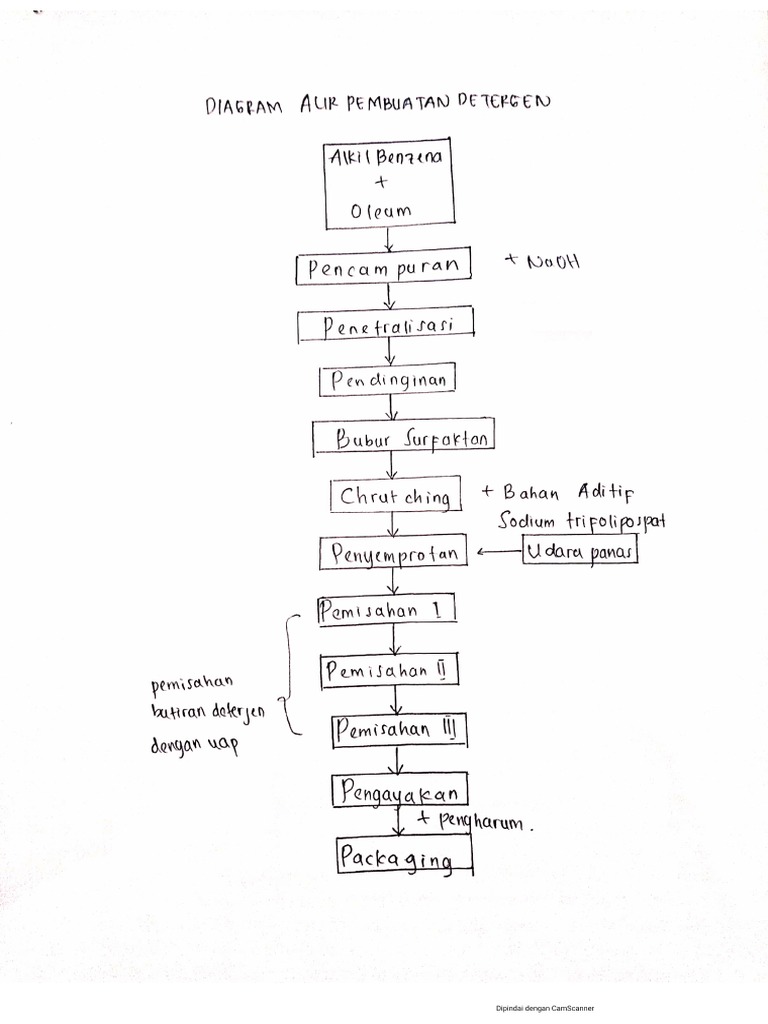 DIAGRAM ALIR PEMBUATAN DETERGEN
Alkil Benzena
+
Oleum
Pencampuran + NaOH
Penetralisasi
Pendinginan
Bubur Surfaktan
Chrutching + Bahan Aditif
Sodium trifolipospat
Penyemprotan Udara panas
Pemisahan I
Pemisahan II
pemisahan
butiran deterjen
dengan uap
Pemisahan III
Pengayakan
+ pengharum.
Packaging
Dipindai dengan CamScanner